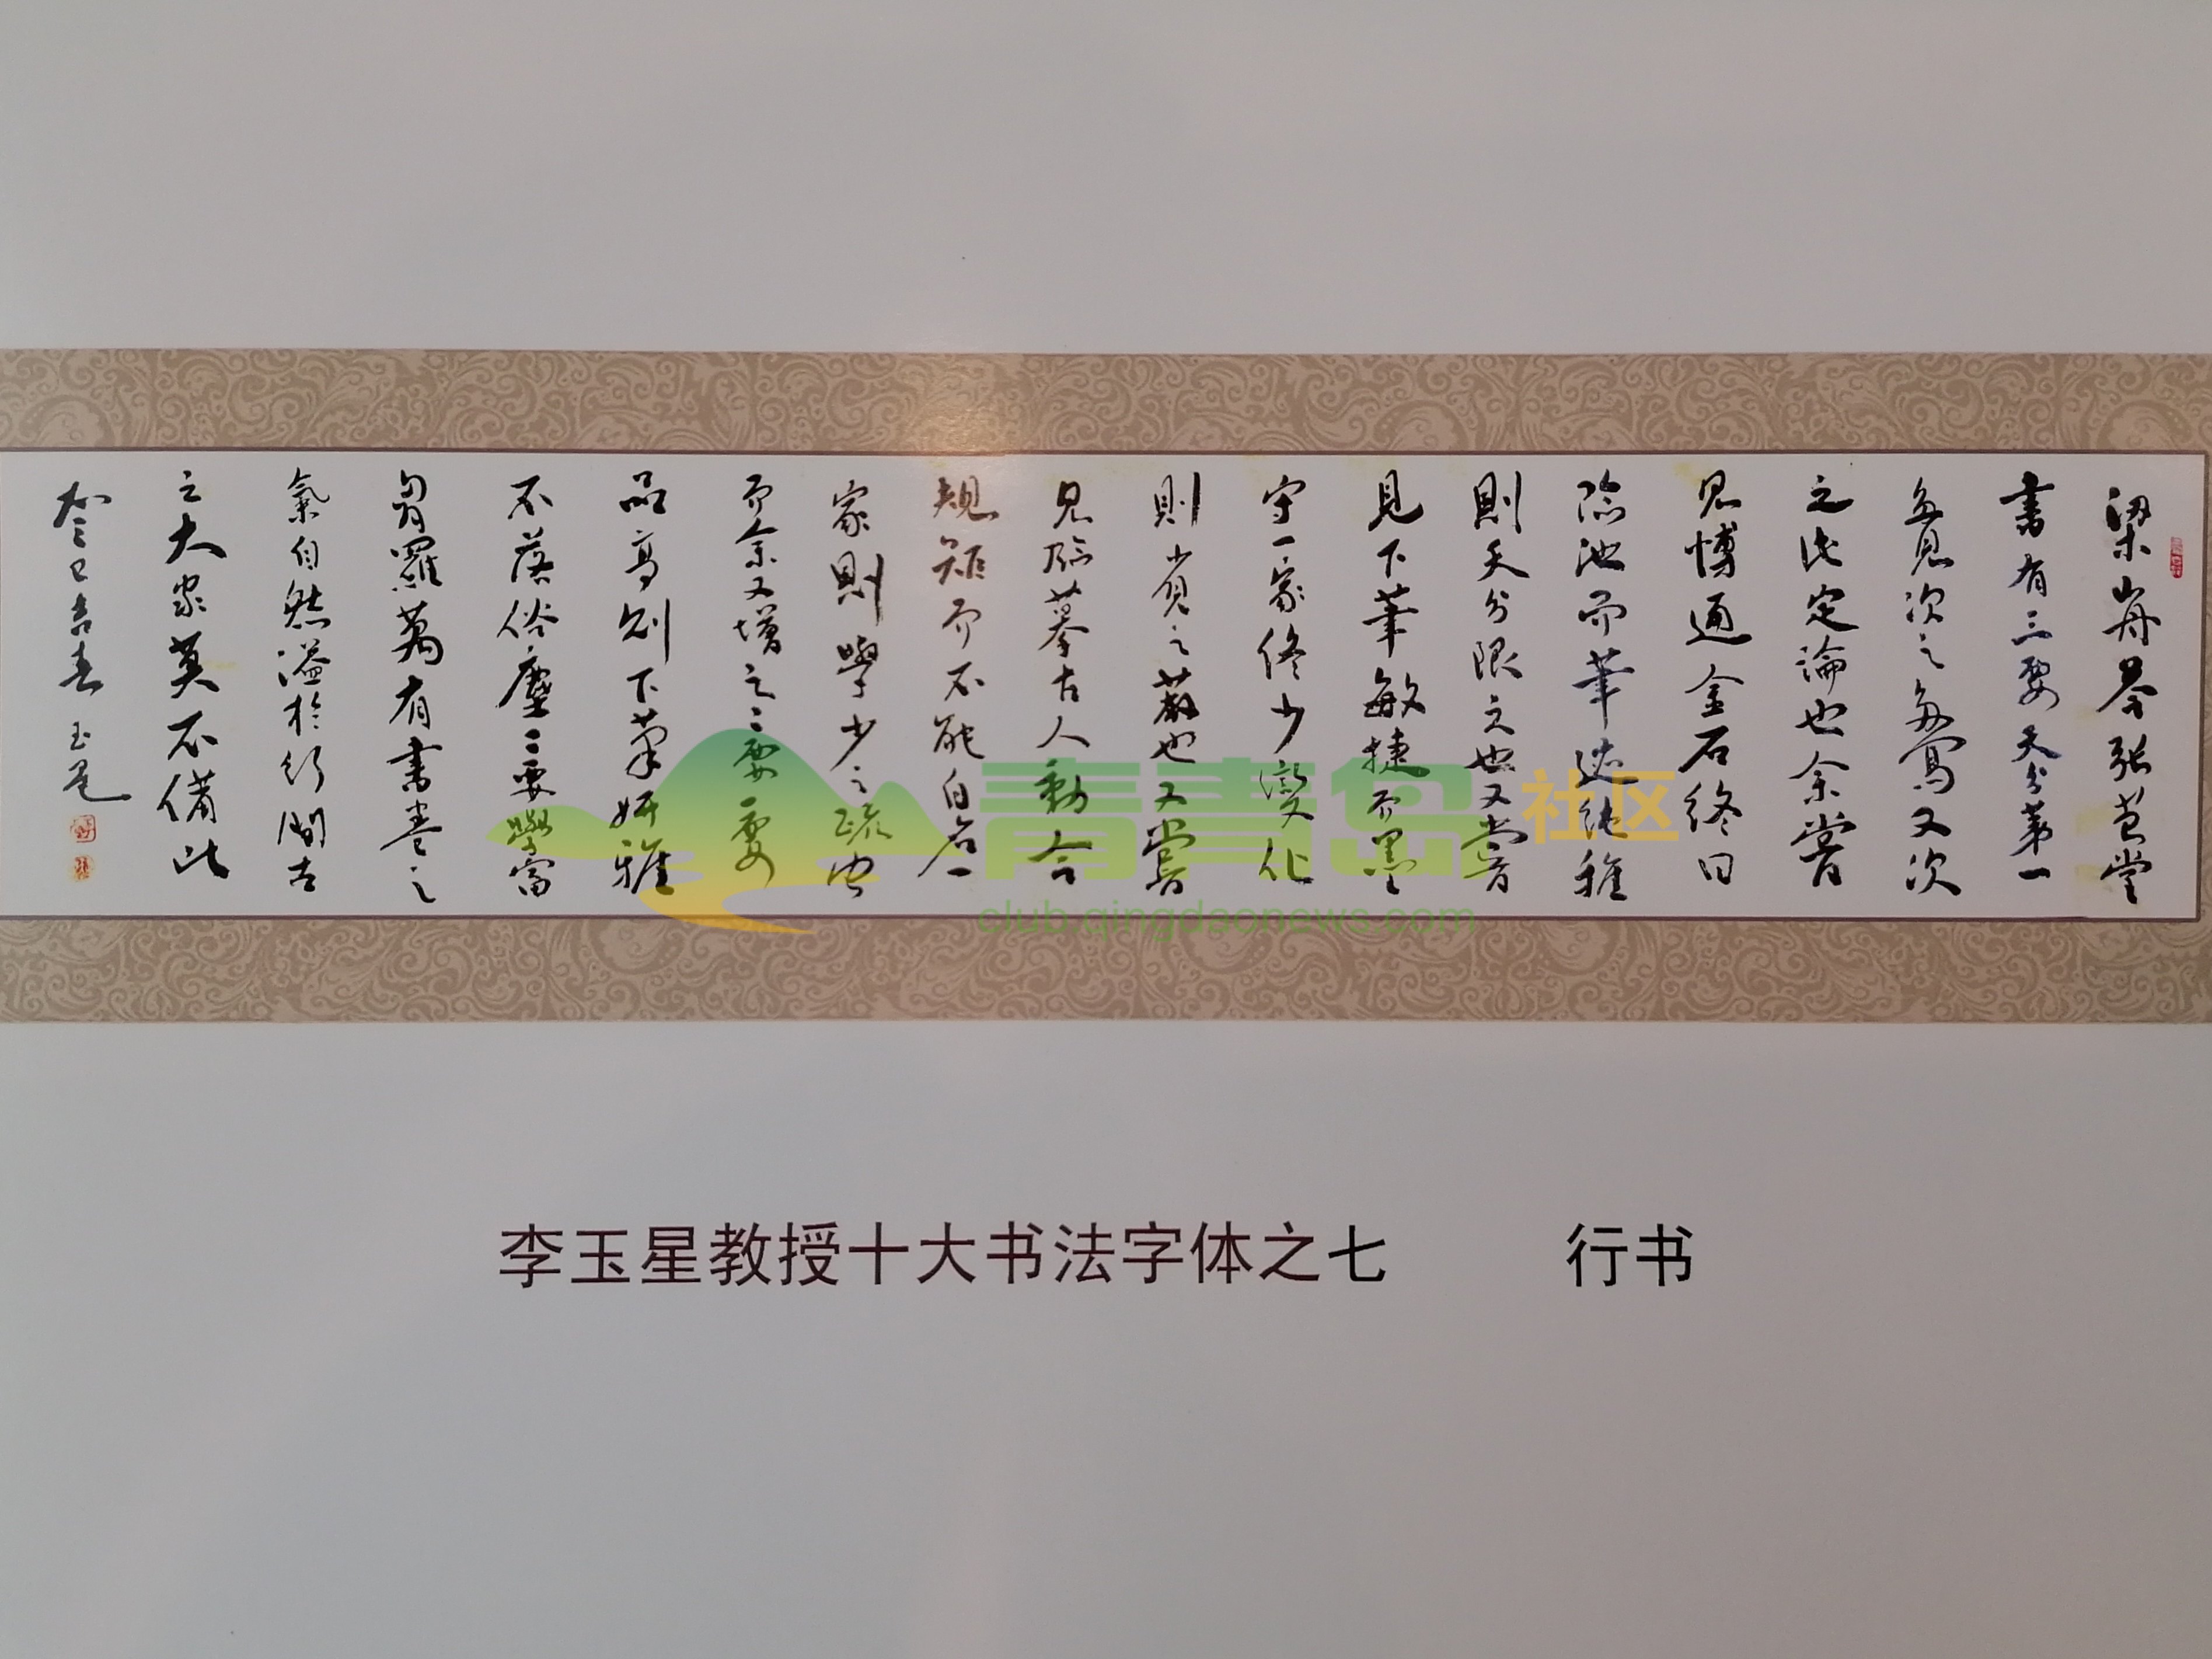 梁山舟答张芑堂
書有三要天分第一
多見次之多寫又次
之此定論也余嘗
見博通金石終日
临池而筆迹純稚
則天分限之也又嘗
見下筆敏捷而墨
守一家终少變化
則少見之蔽也又嘗
見临摹古人動合
規矩而不能自名一
家則學少之疏也
而余又增之二要一要
品高則下筆妍雅
不落俗塵二要學富
胸羅萬有書卷之
氣自然溢於行間古
之大家莫不備此
癸巳吉春 玉星
青青岛社区
club.qingdaonews.com
李玉星教授十大书法字体之七 行书